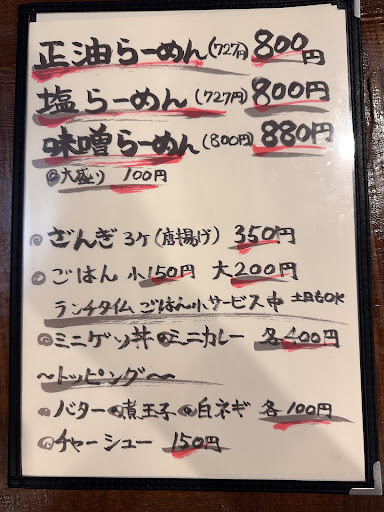 正油らーめん(727円)800円
塩らーめん(727円)800円
味噌らーめん(800円)880円
◎大盛り 100円
◎ざんぎ 3ヶ(唐揚げ) 350円
◎ごはん 小150円 大200円
ランチタイム ごはん小サービス中 土日もOK
◎ミニゲソ丼 ◎ミニカレー 各400円
〜トッピング〜
◎バター ◎煮玉子 ◎白ネギ 各100円
◎チャーシュー 150円